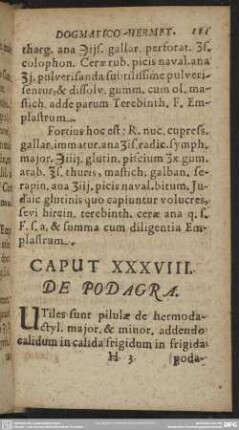 DOGMATICO-HERMET.
tharg. ana ʒijſ. gallar. perforat. ʒſ.
colophon. Ceræ rub. picis naval. ana
ʒj. pulveriſanda ſubtiliſſime pulveri-
ſentur, & diſſolv. gumm. cum ol. ma-
ſtich. adde parum Terebinth. F. Em-
plaſtrum.
Fortius hoc eſt: R. nuc. cupreſſ.
gallar. immatur. ana ʒiſ. radic. ſymph.
major. ʒiiij. glutin. piſcium ʒx gum.
arab. ʒſ. thuris, maſtich. galban. ſe-
rapin. ana ʒiij. picis naval. bitum. Ju-
daic. glutinis quo capiuntur volucres,
ſevi hircin. terebinth. ceræ ana q. ſ.
F. ſ. a. & ſumma cum diligentia Em-
plaſtrum.
CAPUT XXXVIII.
DE PODAGRA.
UTiles ſunt pilulæ de hermoda-
ctyl. major. & minor. addendo
calidum in calida frigidum in frigida
H 3 poda-